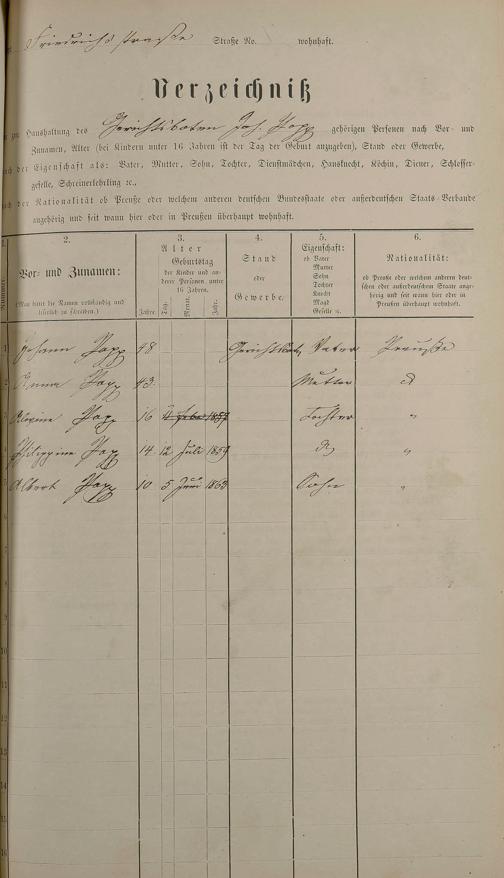 Friedrichsstraße Straße No. wohnhaft.
Verzeichniß
Haushaltung des Gerichtsboten Joh. Papp gehörigen Personen nach Vor- und
Zunamen, Alter (bei Kindern unter 16 Jahren ist der Tag der Geburt anzugeben), Stand oder Gewerbe,
der Eigenschaft als: Vater, Mutter, Sohn, Tochter, Dienstmädchen, Hausknecht, Köchin, Diener, Schlosser-
geselle, Schreinerlehrling ꝛc.,
der Nationalität ob Preuße oder welchem anderen deutschen Bundesstaate oder außerdeutschen Staats-Verbande
angehörig und seit wann hier oder in Preußen überhaupt wohnhaft.
1. 2. 3. 4. 5. 6.
Nummer
Vor- und Zunamen:
(Man bittet die Namen vollständig und
leserlich zu schreiben.)
Alter
Geburtstag
der Kinder und an-
deren Personen unter
16 Jahren.
Jahre Tag. Monat. Jahr.
Stand
oder
Gewerbe.
Eigenschaft:
ob Vater
Mutter
Sohn
Tochter
Knecht
Magd
Geselle ꝛc.
Nationalität:
ob Preuße oder welchem anderen deut-
schen oder außerdeutschen Staate ange-
hörig und seit wann hier oder in
Preußen überhaupt wohnhaft.
1 Johann Papp 48 Gerichtsbote Vater Preuße
2 Anna Papp 43. Mutter do
3 Papp 16 1857 Tochter "
4 Philippine Papp 14 12 Juli 1859 do "
5 Albert Papp 10 5 Juni 1863 Sohn "
6
7
8
9
10
11
12
13
14
15
16